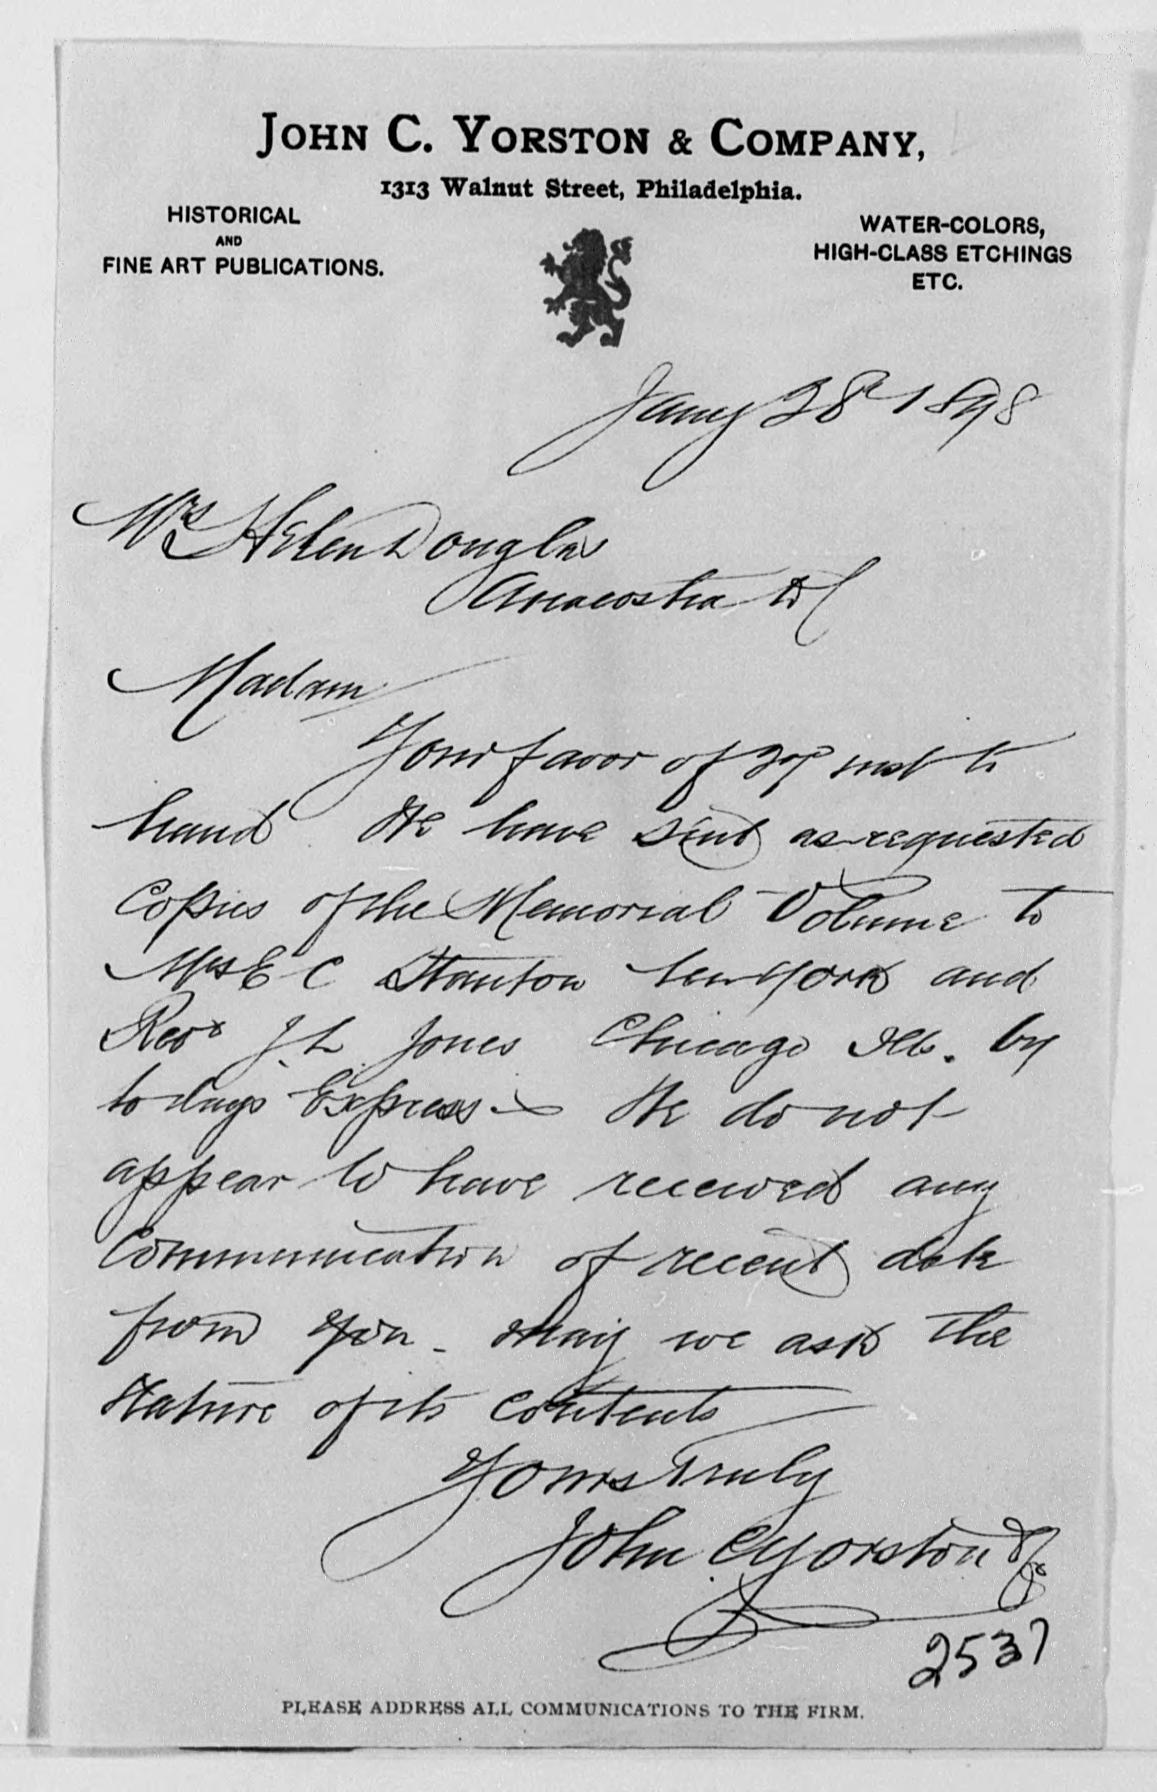 JOHN C. YORSTON & COMPANY,
1313 Walnut Street, Philadelphia.
HISTORICAL
AND
FINE ART PUBLICATIONS.
WATER-COLORS,
HIGH-CLASS ETCHINGS
ETC.
Jany 28th 1898
Mrs Helen Douglas
Anacostia DC
Madam
Your favor of 27 inst to
hand We have sent as requested
Copies of the Memorial Volume to
Mrs E C Stanton New York and
Revd J. L. Jones Chicago Ills. by
to days Express We do not
appear to have received any
Communication of recent date
from you - may we ask the
Nature of its contents
Yours Truly
John C Yorston & Co
2537
PLEASE ADDRESS ALL COMMUNICATIONS TO THE FIRM.